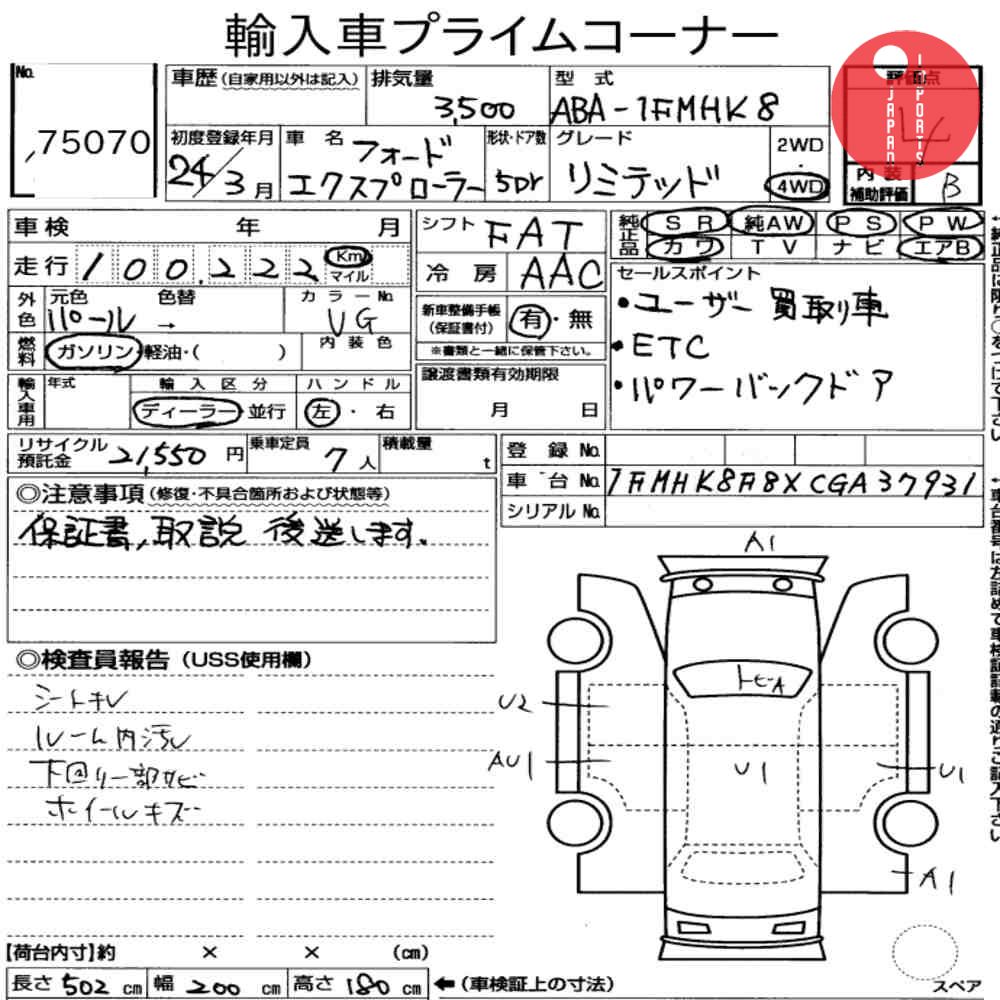 輸入車プライムコーナー
No. 75070
車歴(自家用以外は記入) 排気量 3,500 型式 ABA-1FMHK8
評価点 4
JAPAN IMPORTS
初度登録年月 24/3月 車名 フォード エクスプローラー 形状・ドア数 5Dr グレード リミテッド 2WD・4WD
内装補助評価 B
車検 年 月
走行 100,222 Km マイル
シフト FAT
冷房 AAC
純正品 SR 純AW PS PW
カワ TV ナビ エアB
外色 元色 パール 色替 → カラーNo. UG
内装色
燃料 ガソリン・軽油・( )
新車整備手帳(保証書付) 有・無
※書類と一緒に保管下さい。
セールスポイント
・ユーザー買取り車
・ETC
・パワーバックドア
輸入車用 年式 輸入区分 ディーラー・並行 ハンドル 左・右
譲渡書類有効期限 月 日
リサイクル預託金 21,550円 乗車定員 7人 積載量 t
登録No.
車台No. 1FMHK8F8XCGA37931
シリアルNo.
◎注意事項(修復・不具合箇所および状態等)
保証書,取説 後送します.
◎検査員報告(USS使用欄)
シートキレ
ルーム内汚レ
下回り一部サビ
ホイールキズ
A1
トビA
U2
AU1
U1
U1
A1
【荷台内寸】約 × × (cm)
長さ 502 cm 幅 200 cm 高さ 180 cm ←(車検証上の寸法)
スペア